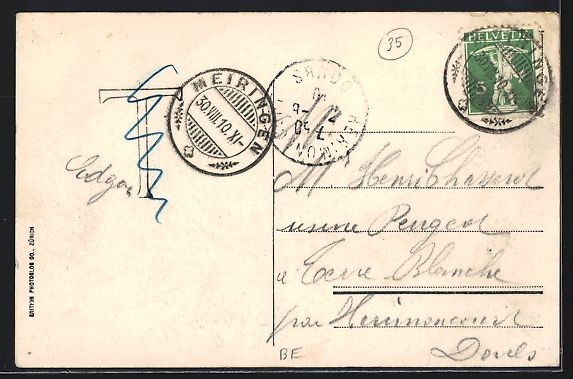 35
HELVETIA
5
MEIRINGEN
30.VIII.10.XI-
MEIRINGEN
HERIMONCOURT
DOUBS
T
Edgar
Mr Henri
usine Peugeot
à Terre Blanche
par Hérimoncourt
Doubs
EDITION PHOTOGLOB CO., ZÜRICH
BE